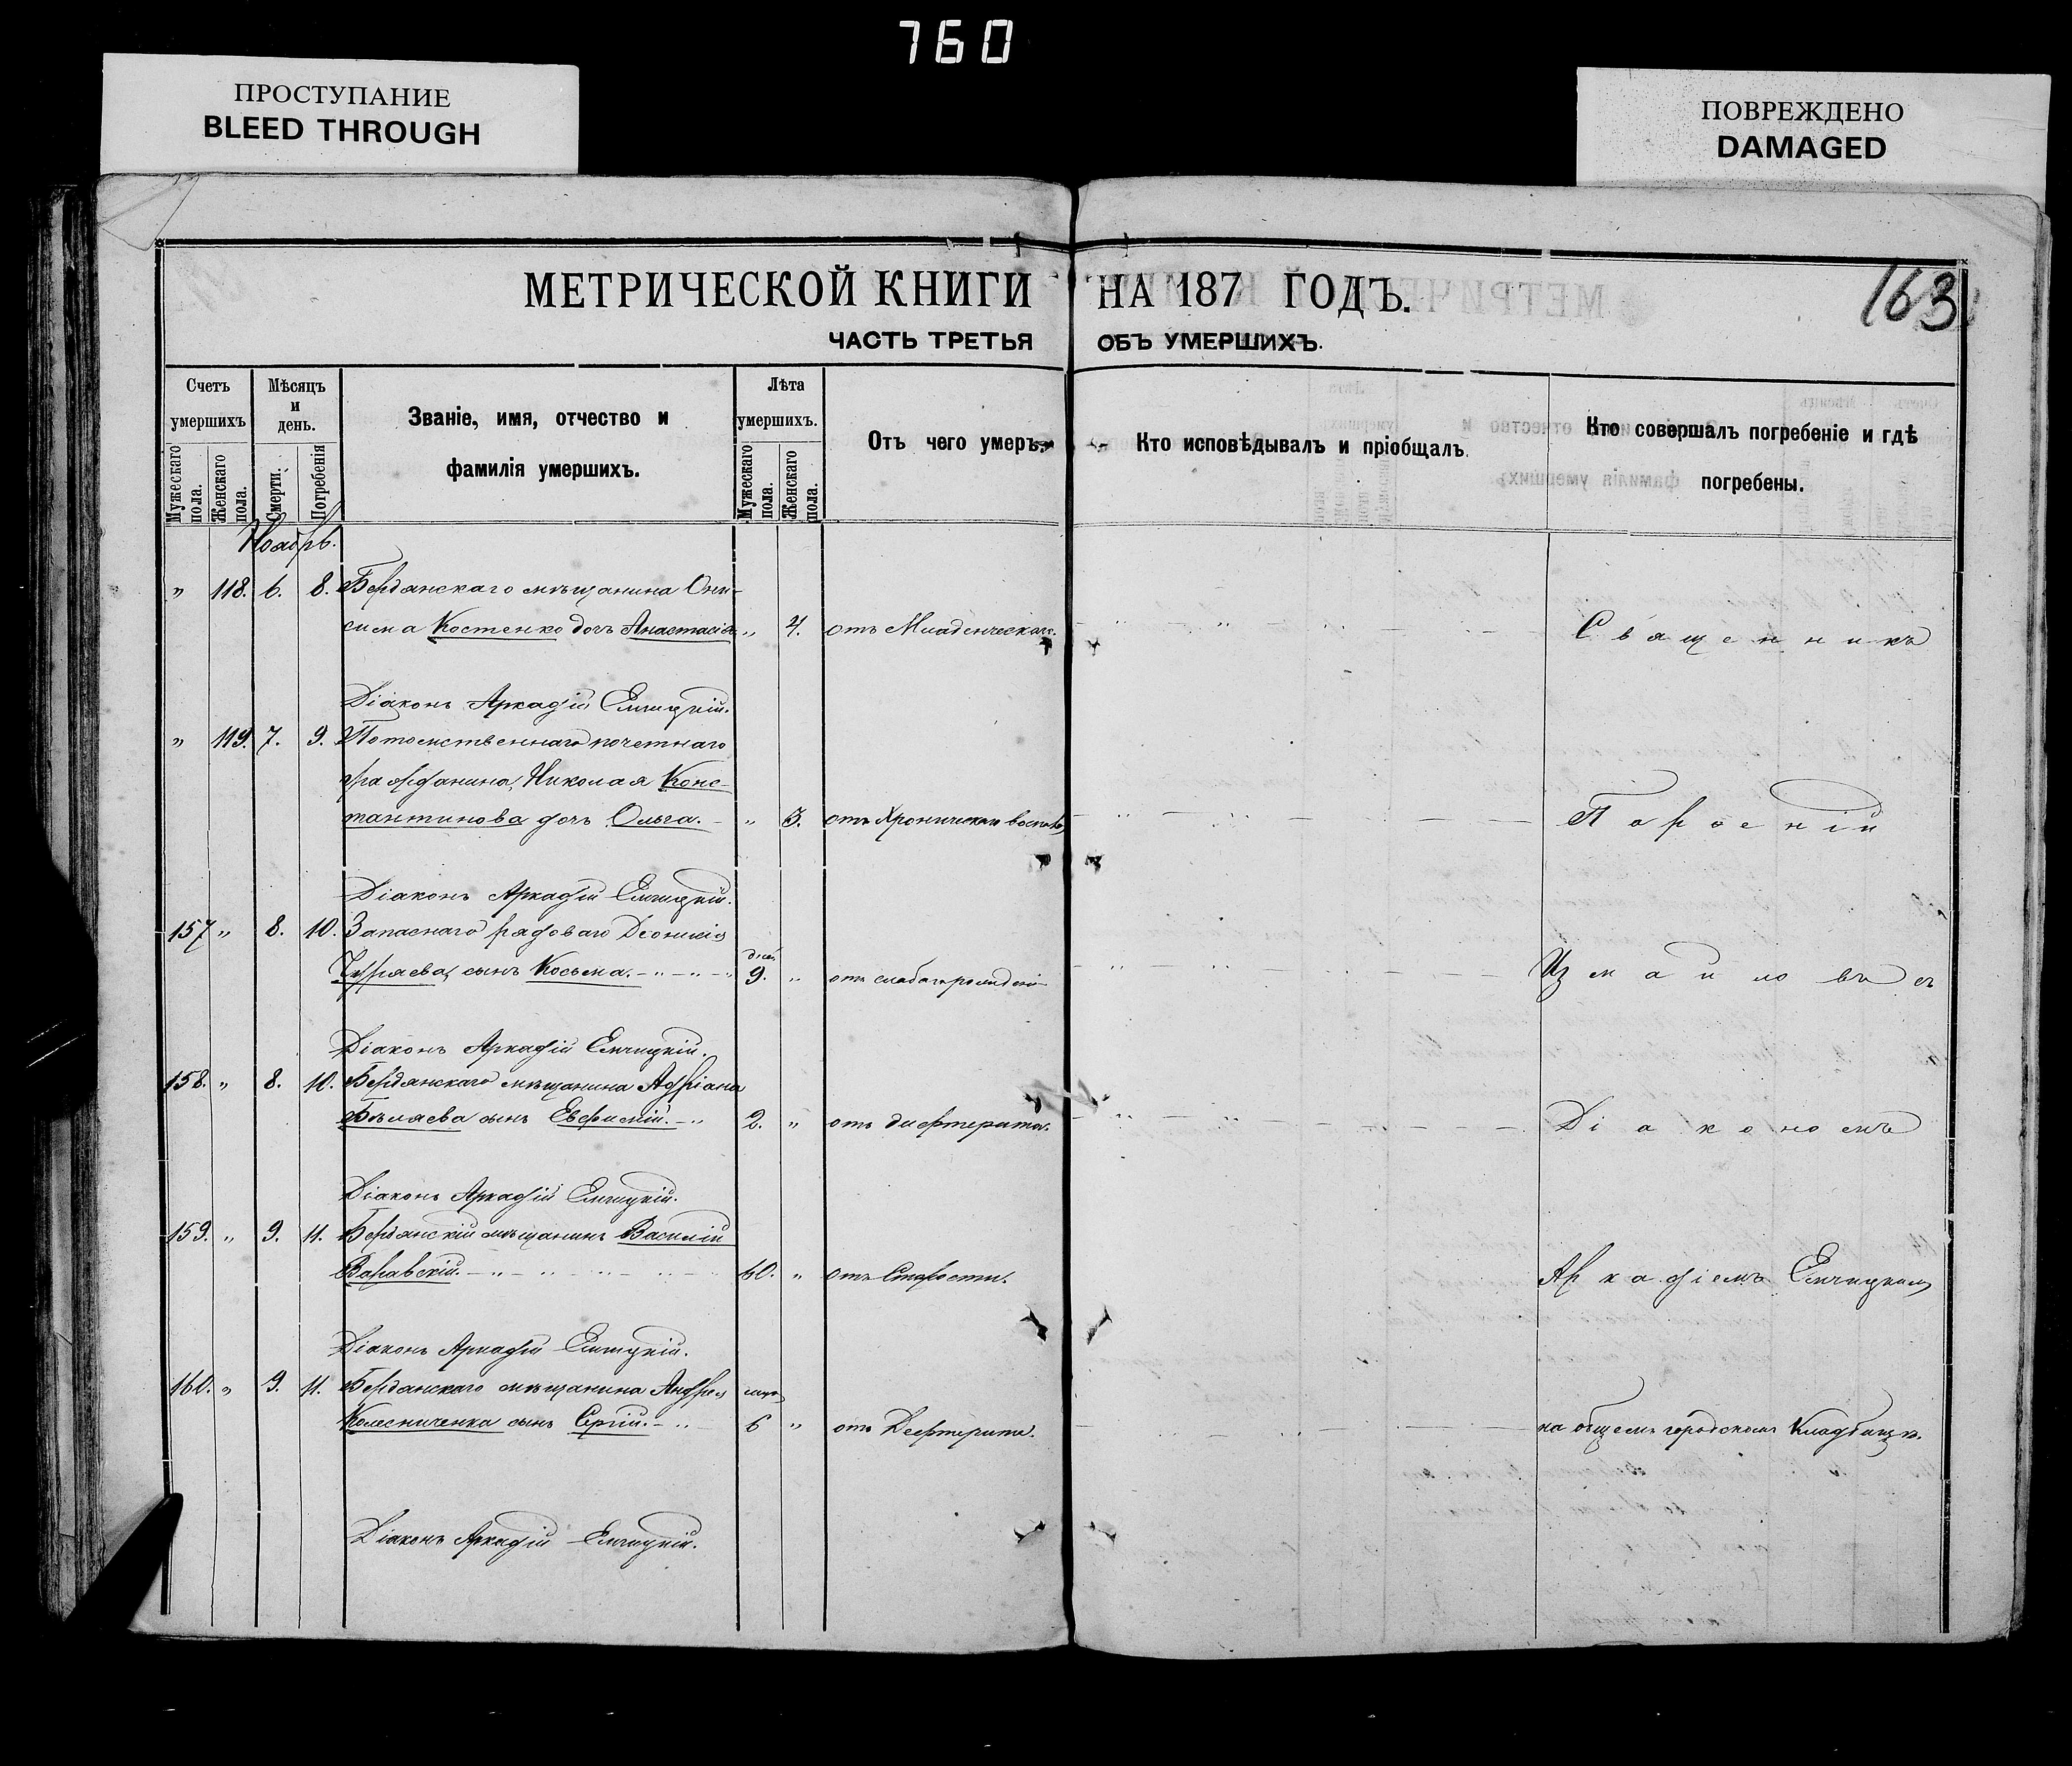 760
ПРОСТУПАНИЕ
BLEED THROUGH
ПОВРЕЖДЕНО
DAMAGED
МЕТРИЧЕСКОЙ КНИГИ НА 187 ГОДЪ.
163
ЧАСТЬ ТРЕТЬЯ ОБЪ УМЕРШИХЪ.
Счетъ умершихъ
Мужескаго пола.
Женскаго пола.
Мѣсяцъ и день.
Смерти.
Погребенія
Званіе, имя, отчество и фамилія умершихъ.
Лѣта умершихъ.
Мужескаго пола.
Женскаго пола.
Отъ чего умеръ.
Кто исповѣдывалъ и пріобщалъ.
Кто совершалъ погребеніе и гдѣ погребены.
Ноябрь.
" 118. 6. 8. Бердянскаго мѣщанина Они-
сима Костенко дочь Анастасія " 4. отъ Младенческаго. Священникъ
Діаконъ Аркадій
" 119. 7. 9. Потомственнаго почетнаго
гражданина Николая Конс-
тантинова дочь Ольга. " 3. отъ Хроническаго
Діаконъ Аркадій
157 " 8. 10. Запаснаго рядоваго Діонисія
сынъ Косьма. дней 9. " отъ Измаиловъ съ
Діаконъ Аркадій
158. " 8. 10. Бердянскаго мѣщанина Адріана
Бѣляева сынъ Евфимій. 2. " отъ дифтерита. Діакономъ
Діаконъ Аркадій
159. " 9. 11. Бердянскій мѣщанинъ Василій
Варавскій. 60. " отъ Старости. Аркадіемъ
Діаконъ Аркадій
160. " 9. 11. Бердянскаго мѣщанина Андрея
Колесниченка сынъ Сергій. 6 " отъ Дефтерита. на общемъ городскомъ Кладбищѣ.
Діаконъ Аркадій